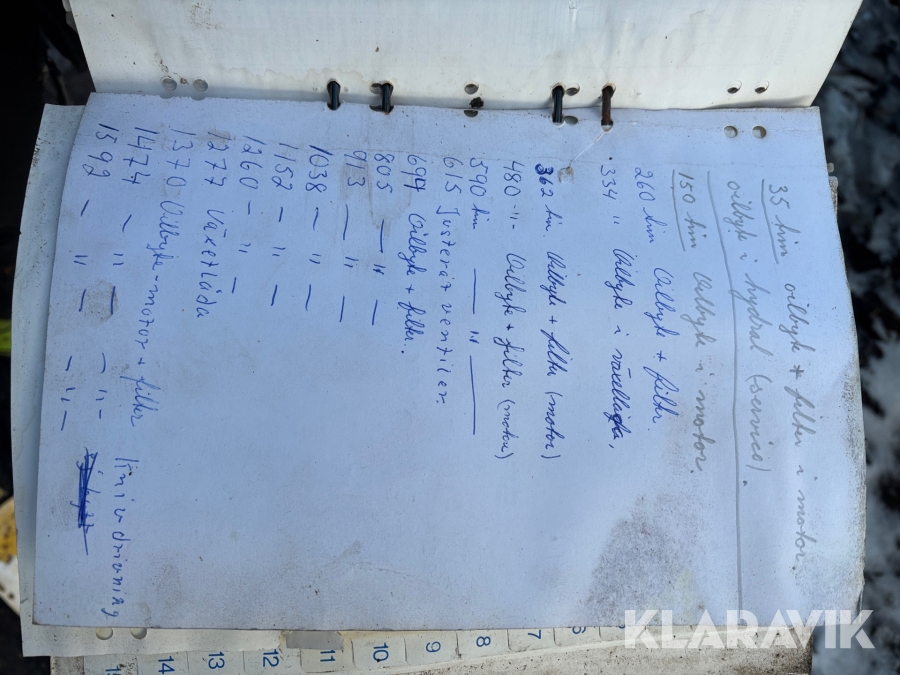 35 tim oilbyte + filter i motor.
oilbyte i hydral (service).
150 tim oilbyte i motor.
260 tim Oilbyte + filter.
334 " Oilbyte i växellåda,
362 tim. Oilbyte + filter (motor)
480 " Oilbyte + filter (motor)
540 tim — " —
615 Justerat ventiler.
694 Oilbyte + filter.
805 — " —
913 — " —
1038 — " —
1152 — " —
1260 — " —
1277 Växellåda
1370 Oilbyte-motor + filter
1474 - " - - " - linivdrivning
1592 - " - - " -
6
7
8
9
10
11
12
13
14
15
KLARAVIK